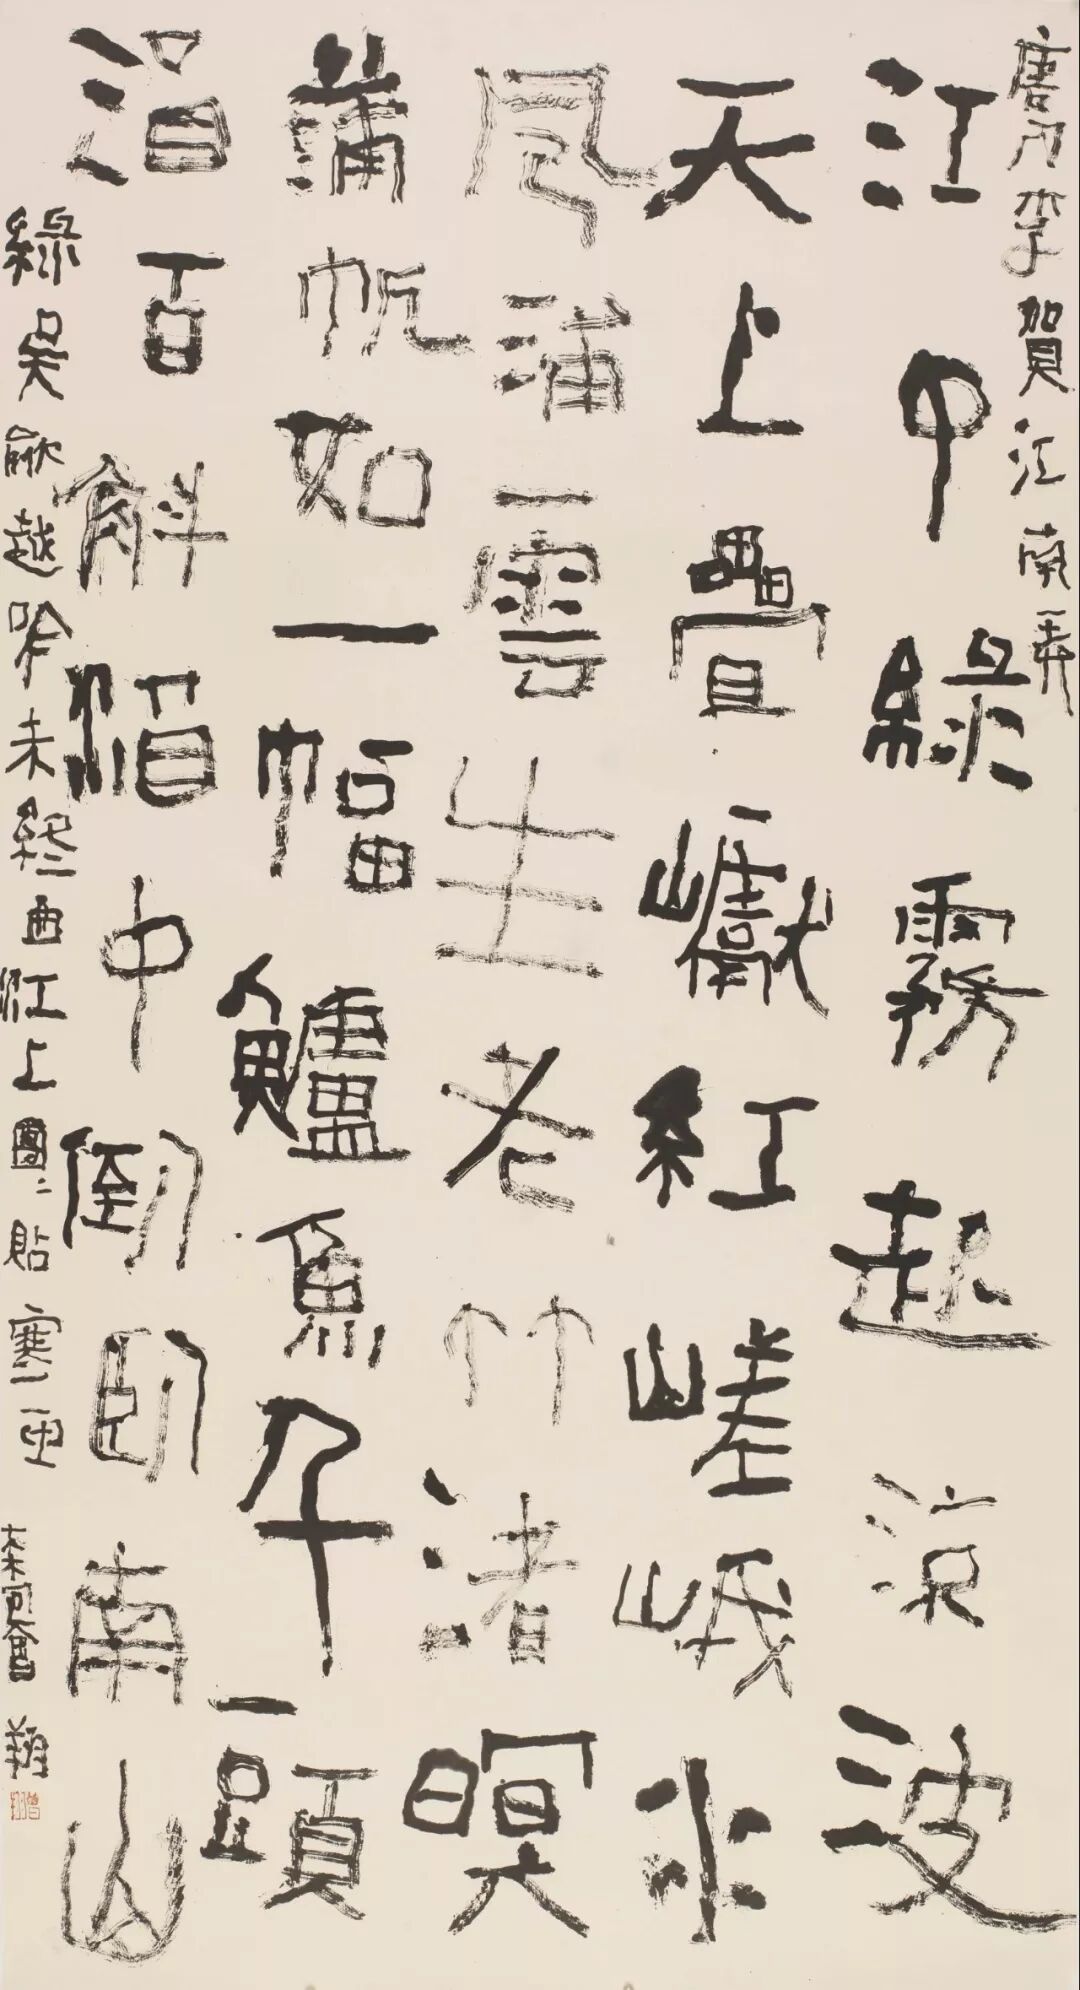 唐人李賀江南弄
江中綠霧起涼波
天上疊巘紅嵯峨水
風浦雲生老竹渚暝
蒲帆如一幅鱸魚千頭
酒百斛酒中倒臥南山
綠吳歈越吟未終曲江上團〻貼寒玉 曾翔